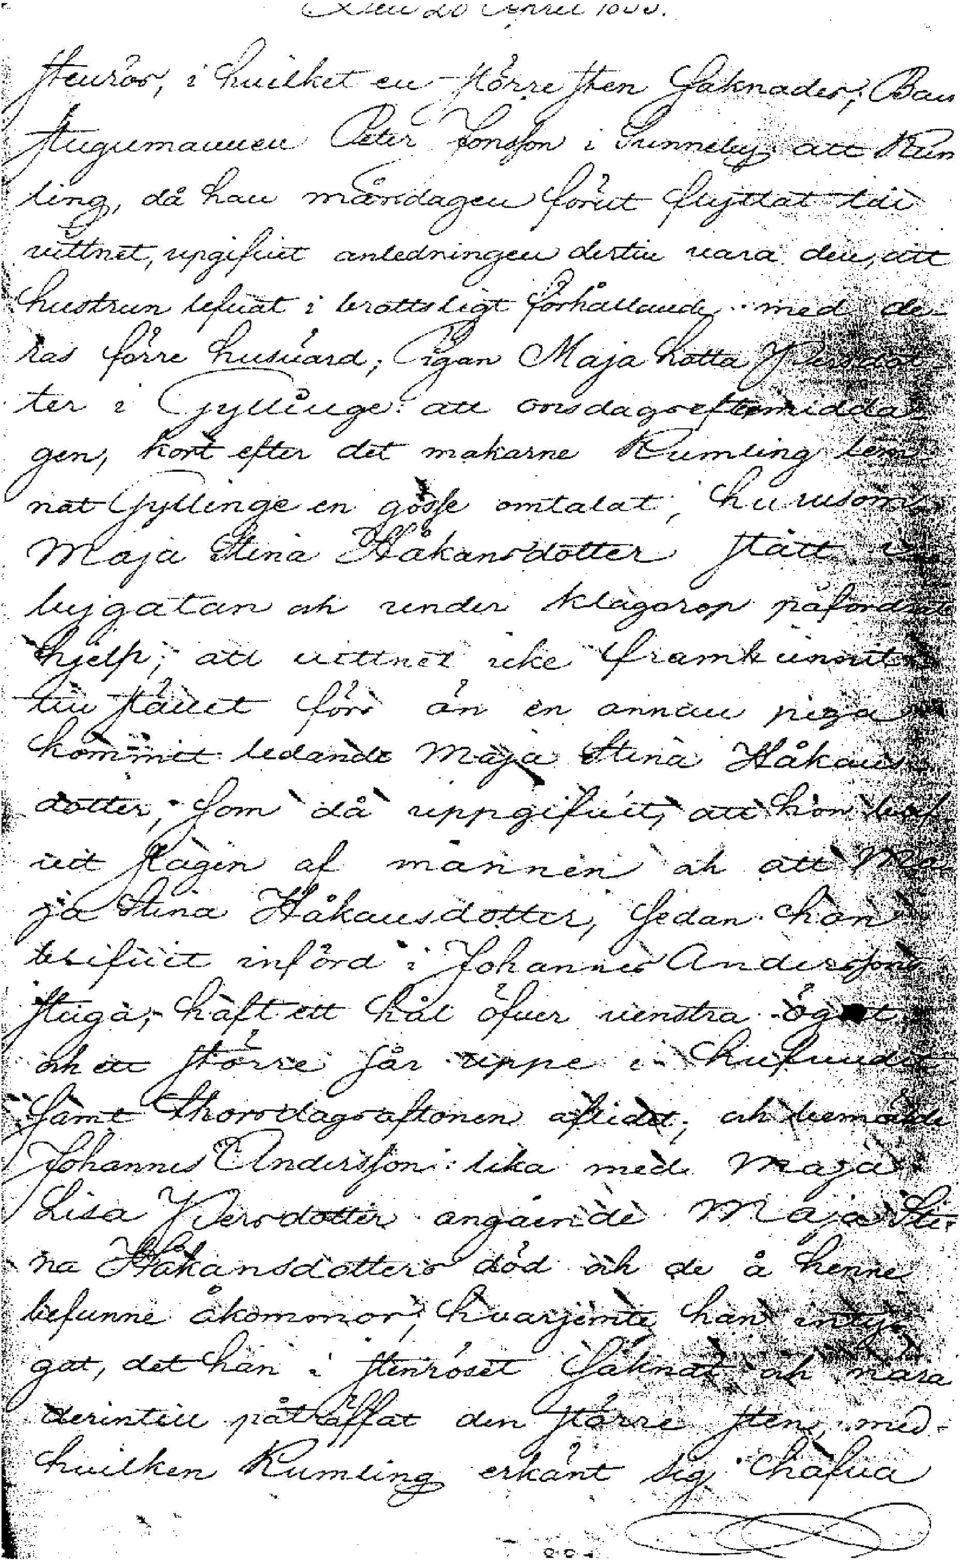 Den 20 April
stenrös, i hvilket en större sten saknades; Back
stugumannen Peter Jonsson i Sunneby: att Rum
ling, då han måndagen förut flyttat till
vittnet, upgifvit anledningen dertill vara den, att
hustrun lefvat i brottsligt förhållande med de
ras förre husvärd; Pigan Maja Lotta Persdot
ter i Gyllinge: att onsdagseftermidda
gen, kort efter det makarne Rumling lem
nat Gyllinge en gosse omtalat, hurusom
Maja Stina Håkansdotter stått i
bygatan och under klagorop påfordrat
hjelp; att vittnet icke framkunnit
till stället förr än en annan piga
kommit ledande Maja Stina Håkans
dotter, som då uppgifvit, att hon blef
vit slagen af mannen och att Ma
ja Stina Håkansdotter, sedan hon
blifvit införd i Johannes Anderssons
stuga, haft ett hål öfver venstra ögat
och ett större sår uppe i hufvudet
samt thorsdagsaftonen aflidit; och bemälde
Johannes Andersson: lika med Maja
Lisa Persdotter angående Maja Sti
na Håkansdotters död och de å henne
befunne åkommor, hvarjemte han inty
gat, det han i stenröset saknat och nära
derintill påträffat den större sten, med
hvilken Rumling erkänt sig hafva